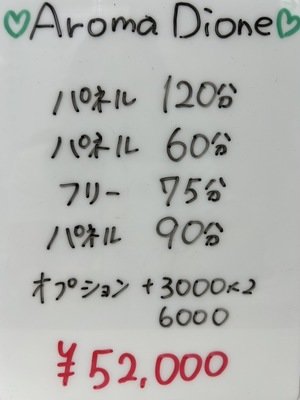 Aroma Dione
パネル 120分
パネル 60分
フリー 75分
パネル 90分
オプション +3000×2
6000
¥52,000